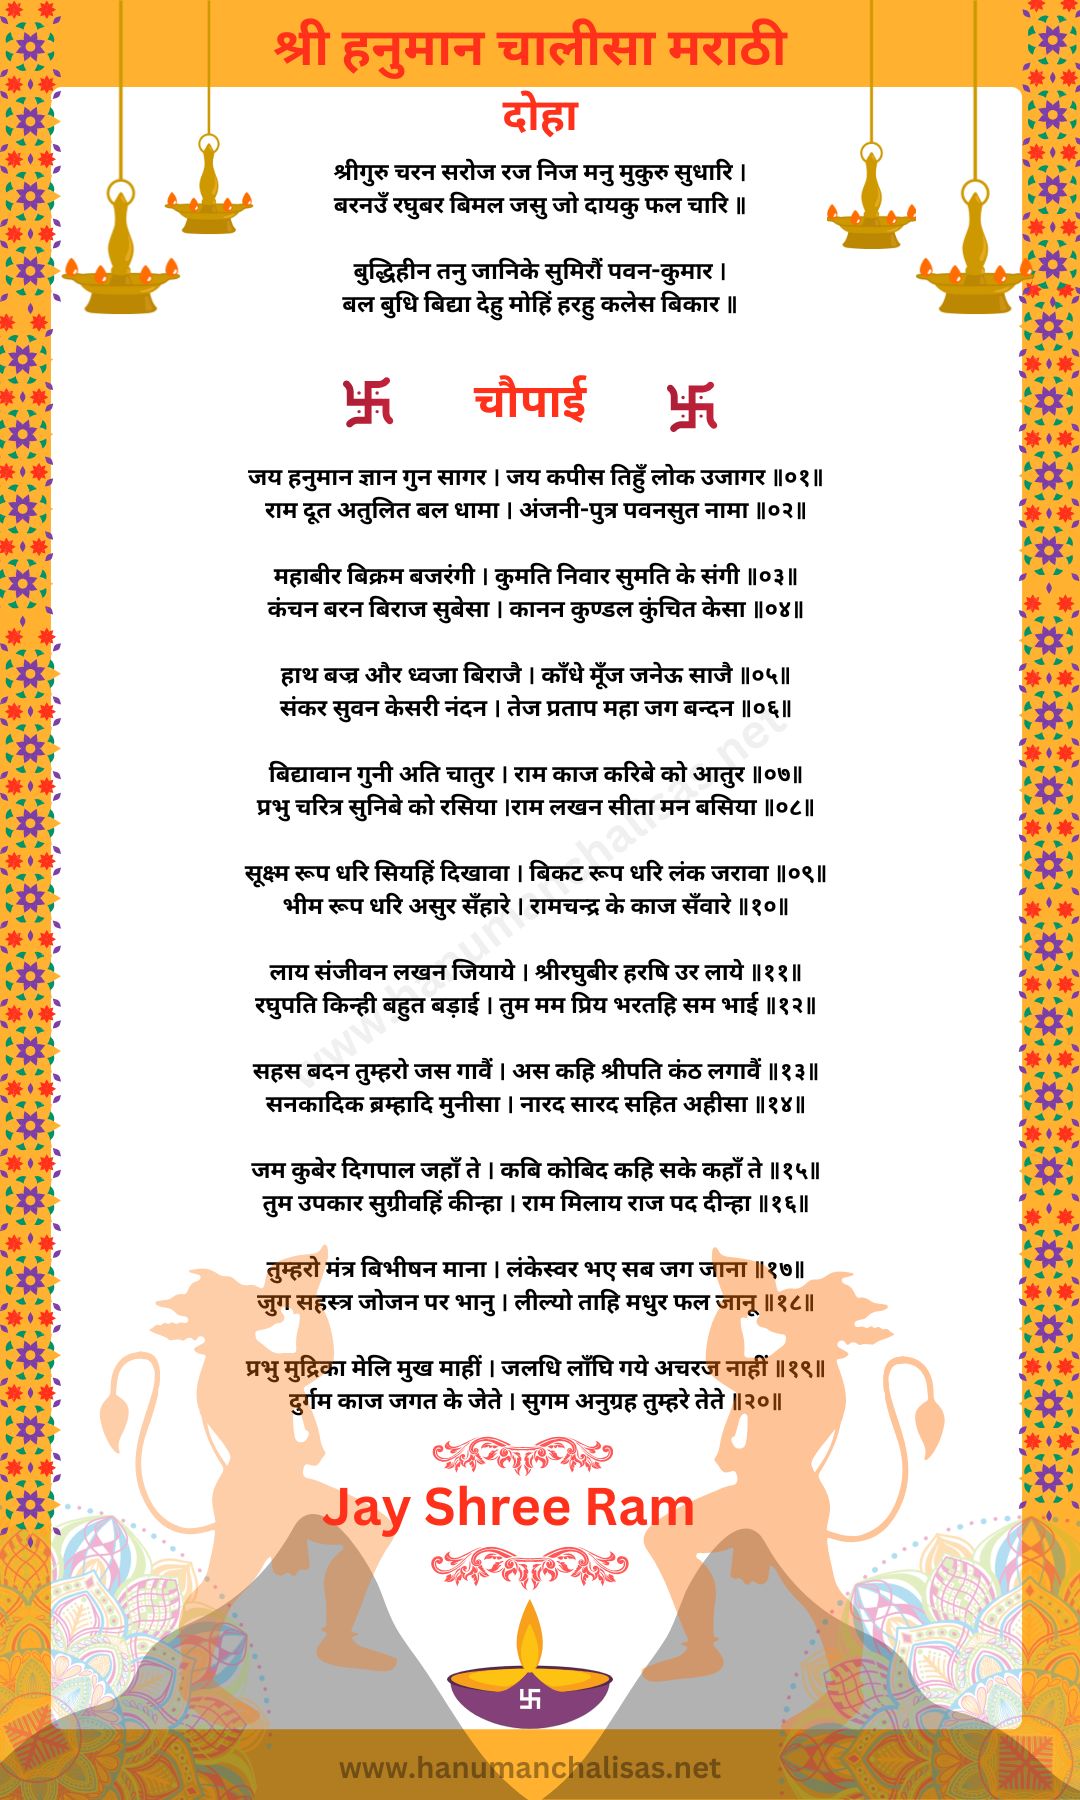 श्री हनुमान चालीसा मराठी
दोहा
श्रीगुरु चरन सरोज रज निज मनु मुकुरु सुधारि ।
बरनउँ रघुबर बिमल जसु जो दायकु फल चारि ॥
बुद्धिहीन तनु जानिके सुमिरौं पवन-कुमार ।
बल बुधि बिद्या देहु मोहिं हरहु कलेस बिकार ॥
चौपाई
जय हनुमान ज्ञान गुन सागर । जय कपीस तिहुँ लोक उजागर ॥०१॥
राम दूत अतुलित बल धामा । अंजनी-पुत्र पवनसुत नामा ॥०२॥
महाबीर बिक्रम बजरंगी । कुमति निवार सुमति के संगी ॥०३॥
कंचन बरन बिराज सुबेसा । कानन कुण्डल कुंचित केसा ॥०४॥
हाथ बज्र और ध्वजा बिराजै । काँधे मूँज जनेऊ साजै ॥०५॥
संकर सुवन केसरी नंदन । तेज प्रताप महा जग बन्दन ॥०६॥
बिद्यावान गुनी अति चातुर । राम काज करिबे को आतुर ॥०७॥
प्रभु चरित्र सुनिबे को रसिया ।राम लखन सीता मन बसिया ॥०८॥
सूक्ष्म रूप धरि सियहिं दिखावा । बिकट रूप धरि लंक जरावा ॥०९॥
भीम रूप धरि असुर सँहारे । रामचन्द्र के काज सँवारे ॥१०॥
लाय संजीवन लखन जियाये । श्रीरघुबीर हरषि उर लाये ॥११॥
रघुपति किन्ही बहुत बड़ाई । तुम मम प्रिय भरतहि सम भाई ॥१२॥
सहस बदन तुम्हरो जस गावैं । अस कहि श्रीपति कंठ लगावैं ॥१३॥
सनकादिक ब्रम्हादि मुनीसा । नारद सारद सहित अहीसा ॥१४॥
जम कुबेर दिगपाल जहाँ ते । कबि कोबिद कहि सके कहाँ ते ॥१५॥
तुम उपकार सुग्रीवहिं कीन्हा । राम मिलाय राज पद दीन्हा ॥१६॥
तुम्हरो मंत्र बिभीषन माना । लंकेस्वर भए सब जग जाना ॥१७॥
जुग सहस्त्र जोजन पर भानु । लील्यो ताहि मधुर फल जानू ॥१८॥
प्रभु मुद्रिका मेलि मुख माहीं । जलधि लाँघि गये अचरज नाहीं ॥१९॥
दुर्गम काज जगत के जेते । सुगम अनुग्रह तुम्हरे तेते ॥२०॥
www.hanumanchalisas.net
Jay Shree Ram
www.hanumanchalisas.net